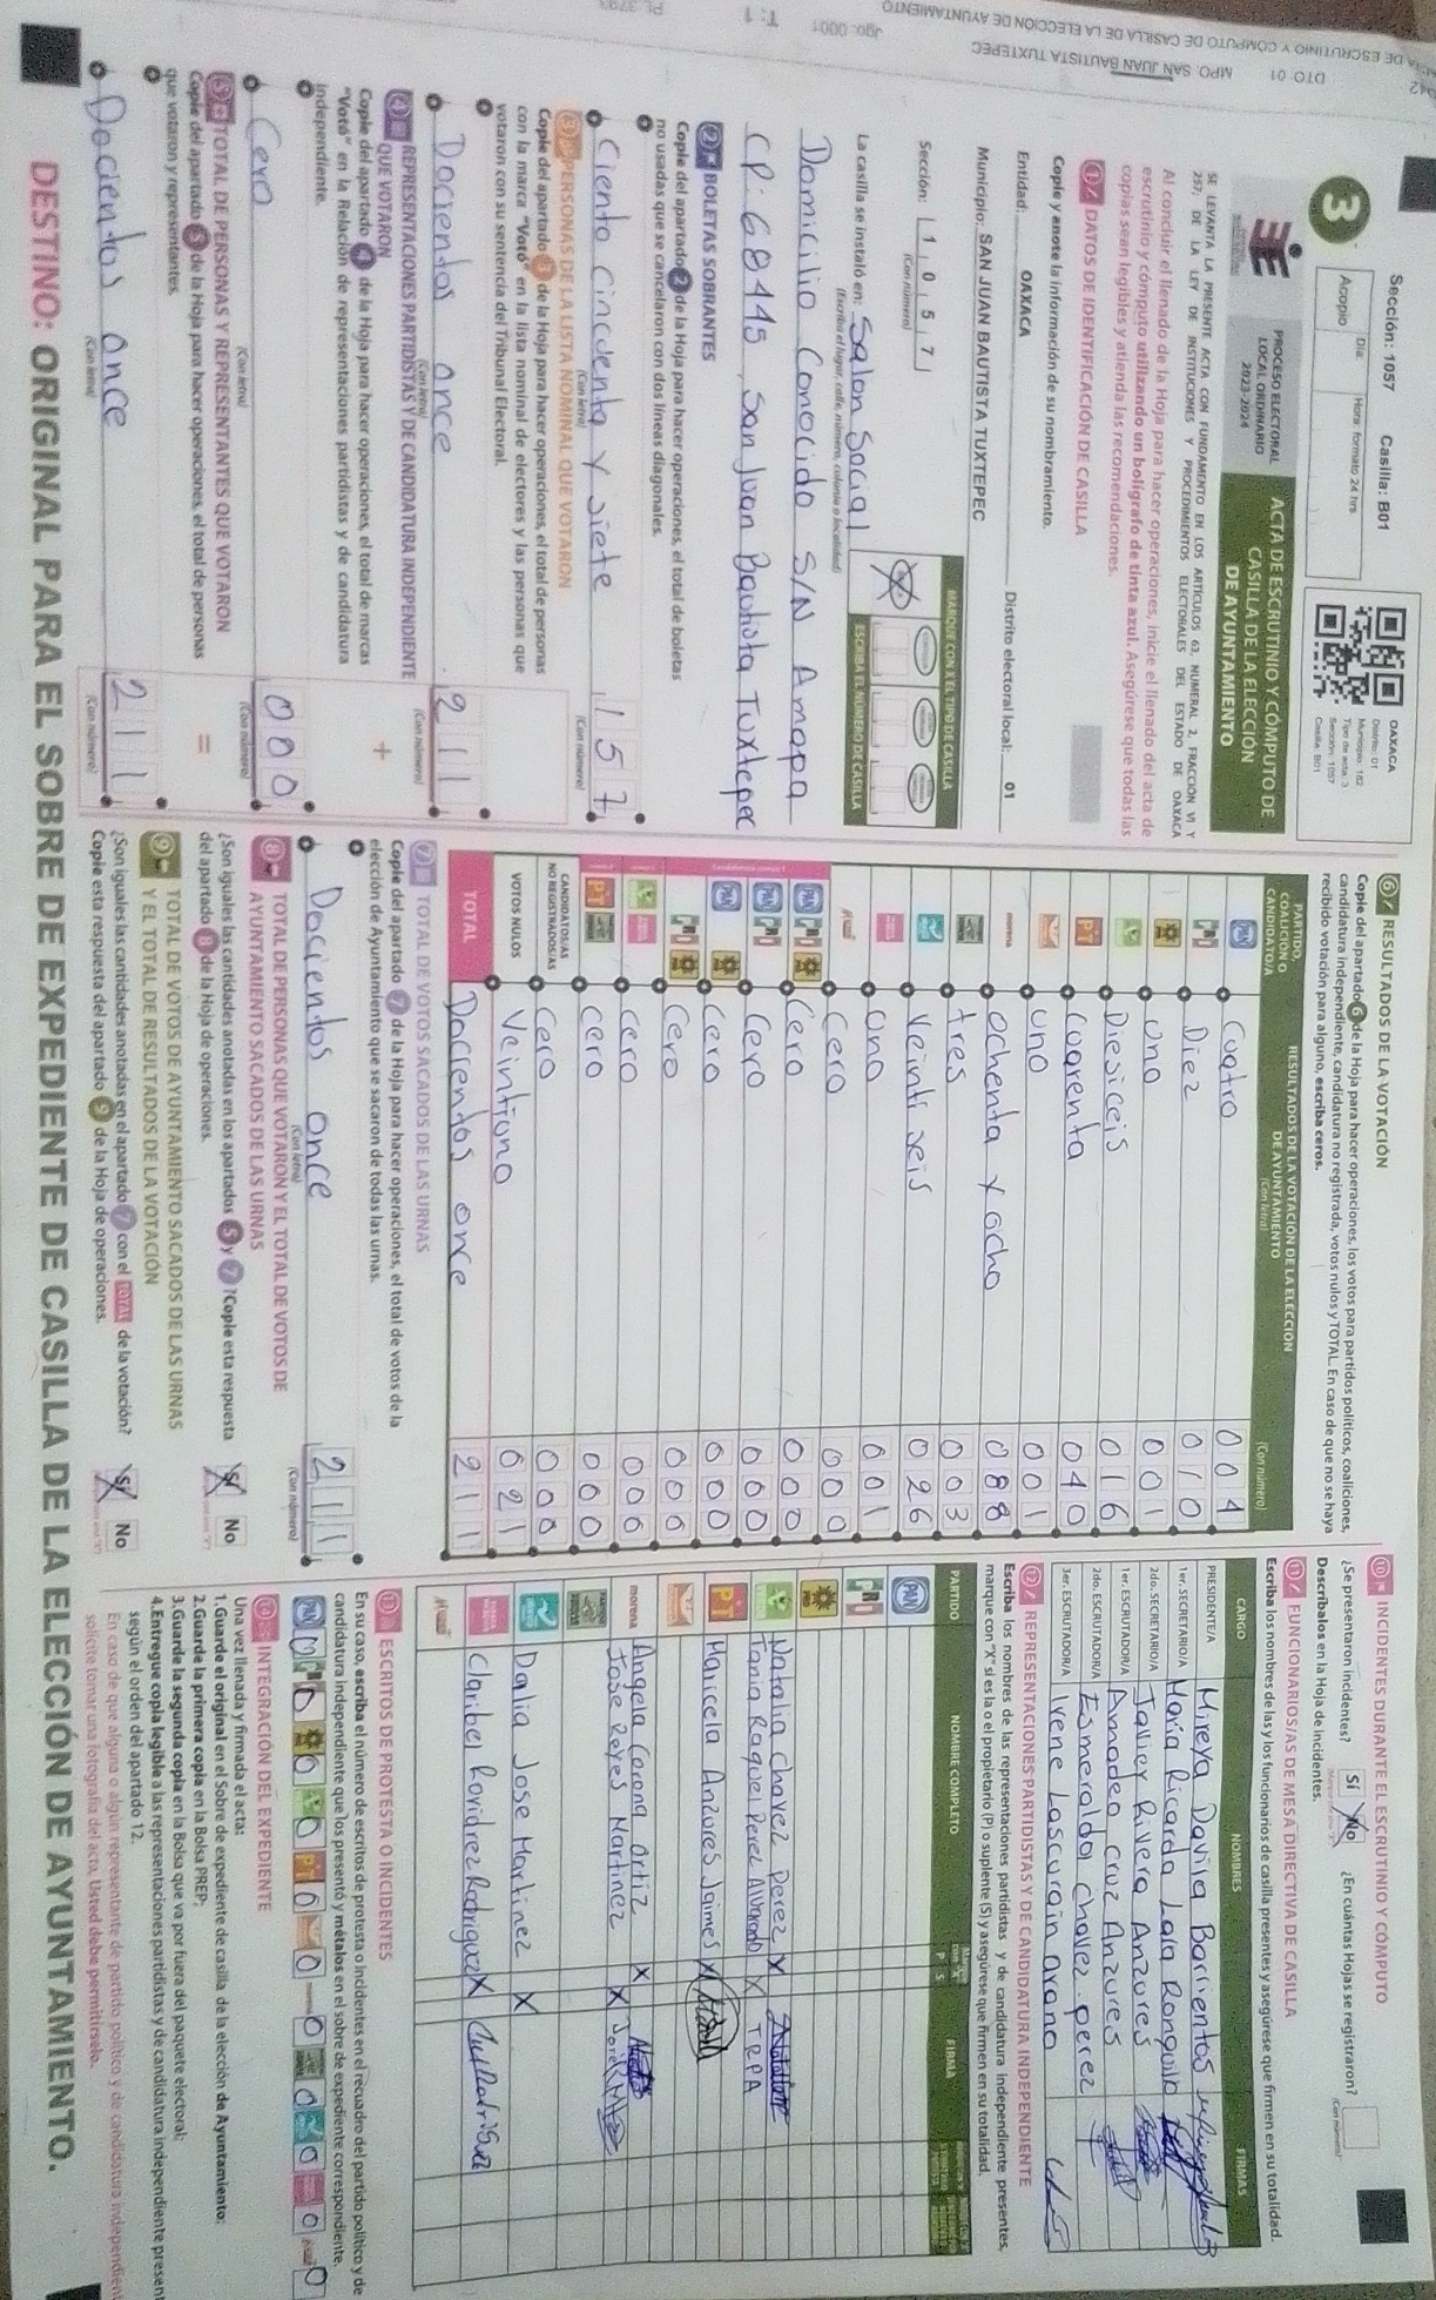 Sección: 1057 Casilla: B01
3
Acopio
Día:
Hora: formato 24 hrs
OAXACA
Distrito: 01
Municipio: 182
Tipo de acta: 3
Sección: 1057
Casilla: B01
PROCESO ELECTORAL
LOCAL ORDINARIO
2023-2024
ACTA DE ESCRUTINIO Y CÓMPUTO DE
CASILLA DE LA ELECCIÓN
DE AYUNTAMIENTO
SE LEVANTA LA PRESENTE ACTA CON FUNDAMENTO EN LOS ARTÍCULOS 63, NUMERAL 2, FRACCIÓN VI Y
257; DE LA LEY DE INSTITUCIONES Y PROCEDIMIENTOS ELECTORALES DEL ESTADO DE OAXACA
Al concluir el llenado de la Hoja para hacer operaciones, inicie el llenado del acta de
escrutinio y cómputo utilizando un bolígrafo de tinta azul. Asegúrese que todas las
copias sean legibles y atienda las recomendaciones.
1 DATOS DE IDENTIFICACIÓN DE CASILLA
Copie y anote la información de su nombramiento.
Entidad: OAXACA Distrito electoral local: 01
Municipio: SAN JUAN BAUTISTA TUXTEPEC
Sección: 1 0 5 7
(Con número)
MARQUE CON X EL TIPO DE CASILLA
X
ESCRIBA EL NÚMERO DE CASILLA
La casilla se instaló en: Salon Social
(Escriba el lugar, calle, número, colonia o localidad)
Domicilio Conocido S/N Amapa
CP: 68445, San Juan Bautista Tuxtepec
2 BOLETAS SOBRANTES
Copie del apartado 2 de la Hoja para hacer operaciones, el total de boletas
no usadas que se cancelaron con dos líneas diagonales.
Ciento cincuenta y siete 157
(Con letra) (Con número)
3 PERSONAS DE LA LISTA NOMINAL QUE VOTARON
Copie del apartado 3 de la Hoja para hacer operaciones, el total de personas
con la marca "Votó" en la lista nominal de electores y las personas que
votaron con su sentencia del Tribunal Electoral.
Docientos once 211
(Con letra) (Con número)
4 REPRESENTACIONES PARTIDISTAS Y DE CANDIDATURA INDEPENDIENTE
QUE VOTARON
+
Copie del apartado 4 de la Hoja para hacer operaciones, el total de marcas
"Votó" en la Relación de representaciones partidistas y de candidatura
independiente.
Cero 000
(Con letra) (Con número)
5 TOTAL DE PERSONAS Y REPRESENTANTES QUE VOTARON
=
Copie del apartado 5 de la Hoja para hacer operaciones, el total de personas
que votaron y representantes.
Docientos once 211
(Con letra) (Con número)
6 RESULTADOS DE LA VOTACIÓN
Copie del apartado 6 de la Hoja para hacer operaciones, los votos para partidos políticos, coaliciones,
candidatura independiente, candidatura no registrada, votos nulos y TOTAL. En caso de que no se haya
recibido votación para alguno, escriba ceros.
PARTIDO,
COALICIÓN O
CANDIDATO/A
RESULTADOS DE LA VOTACIÓN DE LA ELECCIÓN
DE AYUNTAMIENTO
(Con letra)
(Con número)
PAN Cuatro 004
PRI Diez 010
PRD Uno 001
Diesiceis 016
PT Cuarenta 040
Uno 001
morena Ochenta y ocho 088
tres 003
Veinti seis 026
Uno 001
Cero 000
PAN PRI PRD Cero 000
PAN PRI Cero 000
PAN PRD Cero 000
PRI PRD Cero 000
cero 000
PT cero 000
CANDIDATOS/AS
NO REGISTRADOS/AS
Cero 000
VOTOS NULOS Veintiuno 021
TOTAL Docientos once 211
7 TOTAL DE VOTOS SACADOS DE LAS URNAS
Copie del apartado 7 de la Hoja para hacer operaciones, el total de votos de la
elección de Ayuntamiento que se sacaron de todas las urnas.
Docientos once 211
(Con letra) (Con número)
8 TOTAL DE PERSONAS QUE VOTARON Y EL TOTAL DE VOTOS DE
AYUNTAMIENTO SACADOS DE LAS URNAS
¿Son iguales las cantidades anotadas en los apartados 5 y 7? Copie esta respuesta
del apartado 8 de la Hoja de operaciones.
Sí X No
9 TOTAL DE VOTOS DE AYUNTAMIENTO SACADOS DE LAS URNAS
Y EL TOTAL DE RESULTADOS DE LA VOTACIÓN
¿Son iguales las cantidades anotadas en el apartado 7 con el TOTAL de la votación?
Copie esta respuesta del apartado 9 de la Hoja de operaciones.
Sí X No
10 INCIDENTES DURANTE EL ESCRUTINIO Y CÓMPUTO
¿Se presentaron incidentes? Sí No X ¿En cuántas Hojas se registraron?
(Con número)
Descríbalos en la Hoja de incidentes.
11 FUNCIONARIOS/AS DE MESA DIRECTIVA DE CASILLA
Escriba los nombres de las y los funcionarios de casilla presentes y asegúrese que firmen en su totalidad.
CARGO NOMBRES FIRMAS
PRESIDENTE/A Mireya Davila Barrientos
1er. SECRETARIO/A Maria Ricarda Lala Ronquillo
2do. SECRETARIO/A Javier Rivera Anzures
1er. ESCRUTADOR/A Amadeo Cruz Anzures
2do. ESCRUTADOR/A Esmeralda Chavez perez
3er. ESCRUTADOR/A Irene Lascurain arano
12 REPRESENTACIONES PARTIDISTAS Y DE CANDIDATURA INDEPENDIENTE
Escriba los nombres de las representaciones partidistas y de candidatura independiente presentes,
marque con "X" si es la o el propietario (P) o suplente (S) y asegúrese que firmen en su totalidad.
PARTIDO NOMBRE COMPLETO P S FIRMA
PAN
PRI
PRD
Natalia Chavez Perez X
Tania Raquel Perez Alvarado X TRPA
PT Maricela Anzures Jaimes X
morena Angela Carona Ortiz X
Jose Reyes Martinez X
Dalia Jose Martinez X
Claribel Ravidrez Rodriguez X
13 ESCRITOS DE PROTESTA O INCIDENTES
En su caso, escriba el número de escritos de protesta o incidentes en el recuadro del partido político y de
candidatura independiente que los presentó y métalos en el sobre de expediente correspondiente.
PAN 0 PRI 0 PRD 0 0 PT 0 0 0 0 0 0 0
14 INTEGRACIÓN DEL EXPEDIENTE
Una vez llenada y firmada el acta:
1. Guarde el original en el Sobre de expediente de casilla de la elección de Ayuntamiento;
2. Guarde la primera copia en la Bolsa PREP;
3. Guarde la segunda copia en la Bolsa que va por fuera del paquete electoral;
4. Entregue copia legible a las representaciones partidistas y de candidatura independiente present
según el orden del apartado 12.
En caso de que alguna o algún representante de partido político y de candidatura independient
solicite tomar una fotografía del acta, Usted debe permitírselo.
DESTINO: ORIGINAL PARA EL SOBRE DE EXPEDIENTE DE CASILLA DE LA ELECCIÓN DE AYUNTAMIENTO.
DE ESCRUTINIO Y COMPUTO DE CASILLA DE LA ELECCION DE AYUNTAMIENTO
DTO: 01 MPO. SAN JUAN BAUTISTA TUXTEPEC
Jgo: 0001 T: 1